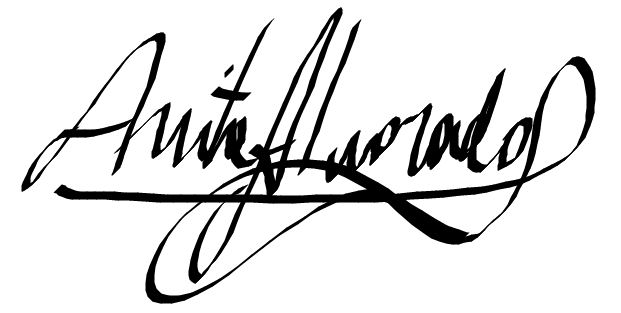 Anita Alvarado